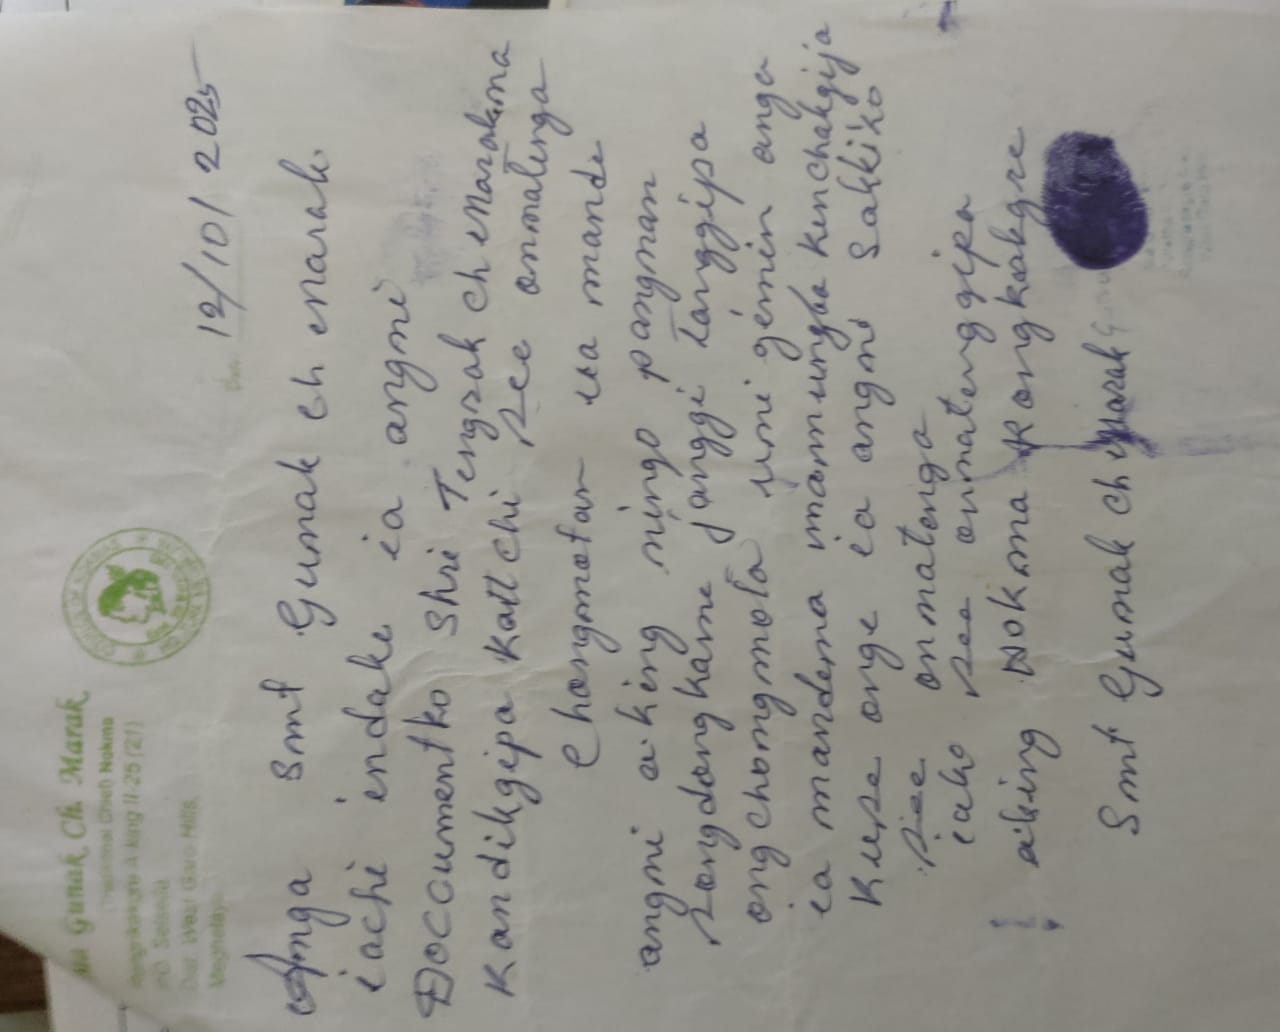 Gunak Ch. Marak
Traditional Chief Nokma
A·king II-25 (21)
P/O Selsella
Dist. West Garo Hills
Meghalaya
12/10/2025
Anga Smt Gunak ch marak
iachi indake ia angni
Documentko Shri Tengrak ch Marakna
Kandikgipa Kattchi see onnatenga
Chongmotan ua mande
angni a·king ningo pangnan
songdongkame janggi tanggipa
ongchongmota uni gimin anga
ia mandena imanmungba kenchakgija
Kuse onge ia angni Sakkiko
see onnatenga
iako see onnatenggipa
aking Nokma Rongkakgre
Smt Gunak ch Marak